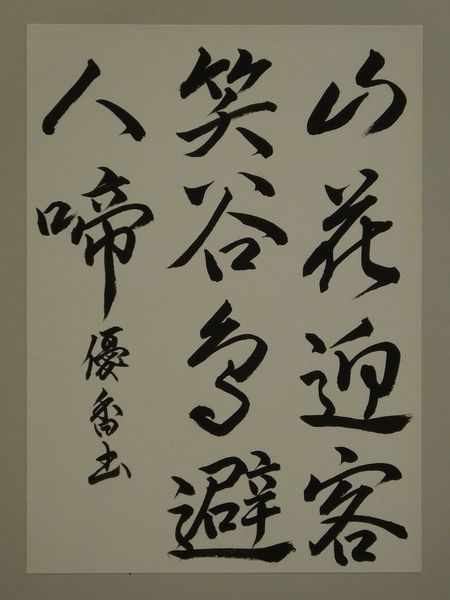 山花迎客
笑谷鳥避
人啼
優香書